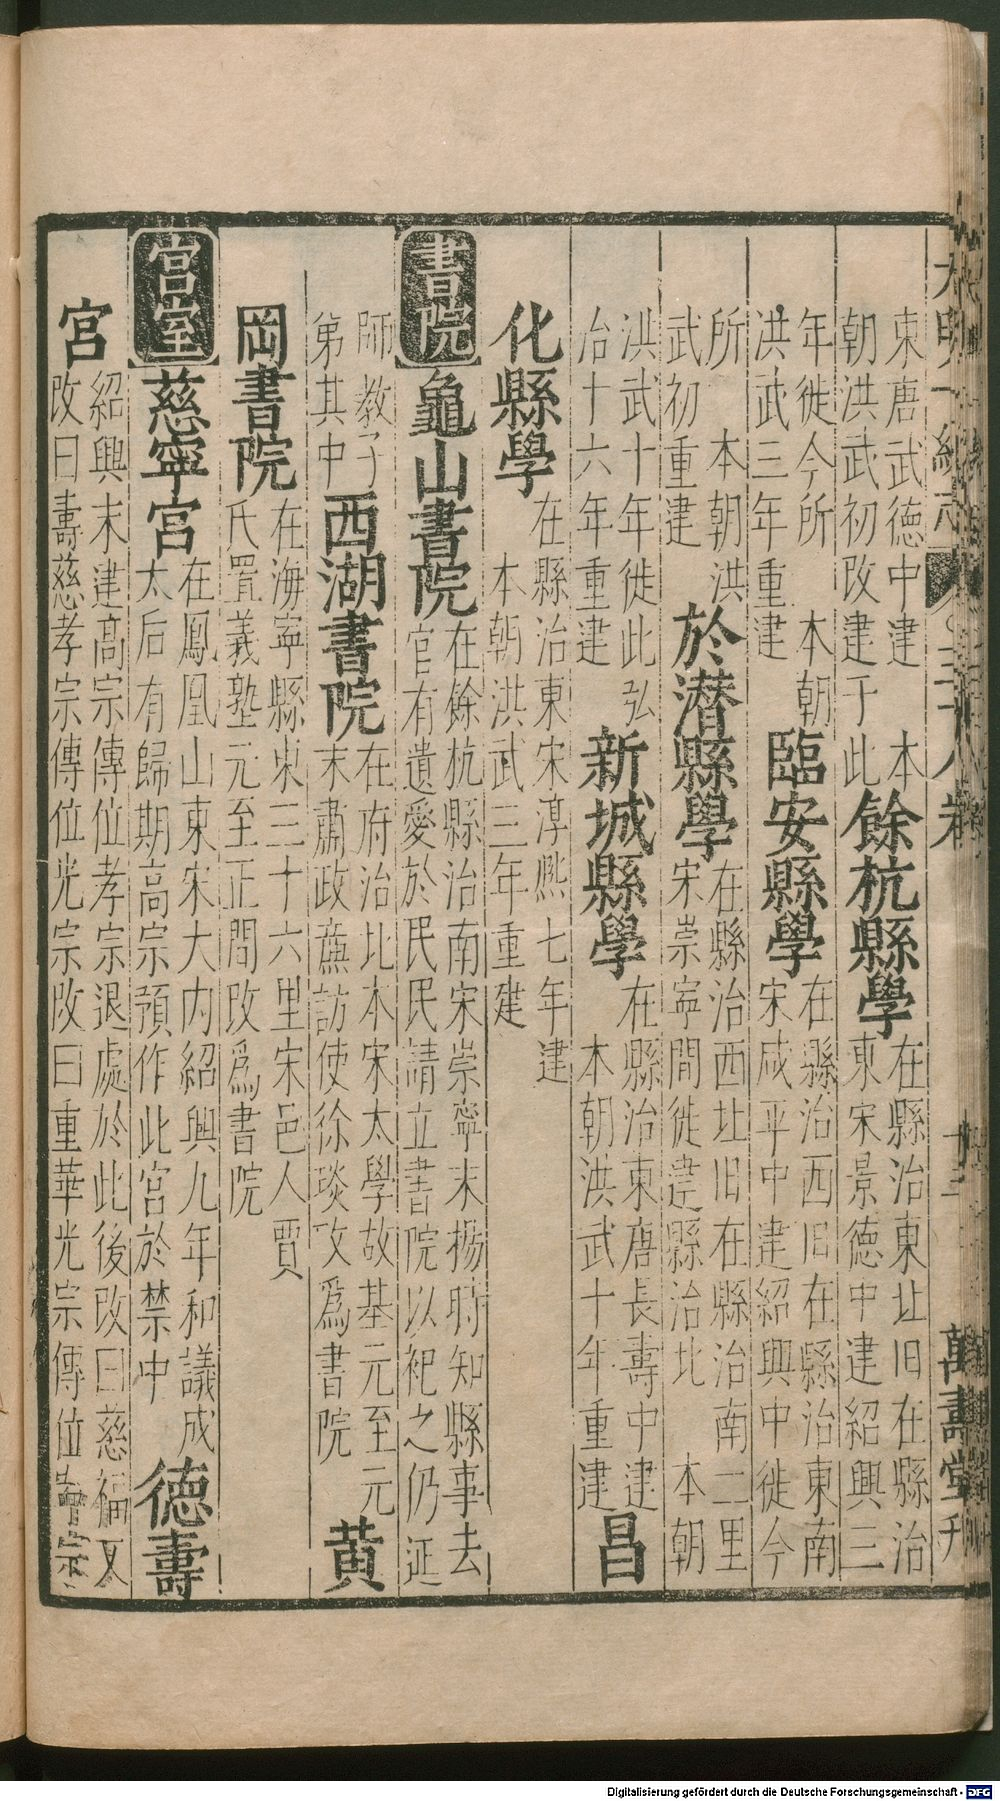 大明一統志 三十八卷 十三 萬壽堂刊
東唐武德中建 本
朝洪武初改建于此
餘杭縣學
在縣治東北旧在縣治
東宋景德中建紹興三
年徙今所 本朝
洪武三年重建
臨安縣學
在縣治西旧在縣治東南
宋咸平中建紹興中徙今
所 本朝洪
武初重建
於潛縣學
在縣治西北旧在縣治南二里
宋崇寧間徙建縣治北 本朝
洪武十年徙此弘
治十六年重建
新城縣學
在縣治東唐長壽中建
本朝洪武十年重建
昌
化縣學
在縣治東宋淳熙七年建
本朝洪武三年重建
書院
龜山書院
在餘杭縣治南宋崇寧末楊時知縣事去
官有遺愛於民民請立書院以祀之仍延
師教子
第其中
西湖書院
在府治北本宋太學故基元至元
末肅政廉訪使徐琰改爲書院
黃
岡書院
在海寧縣東三十六里宋邑人賈
氏置義塾元至正間改爲書院
宮室
慈寧宮
在鳳凰山東宋大内紹興九年和議成
太后有歸期高宗預作此宮於禁中
德壽
宮
紹興末建高宗傳位孝宗退處於此後改曰慈福又
改曰壽慈孝宗傳位光宗改曰重華光宗傳位寧宗
Digitalisierung gefördert durch die Deutsche Forschungsgemeinschaft - DFG